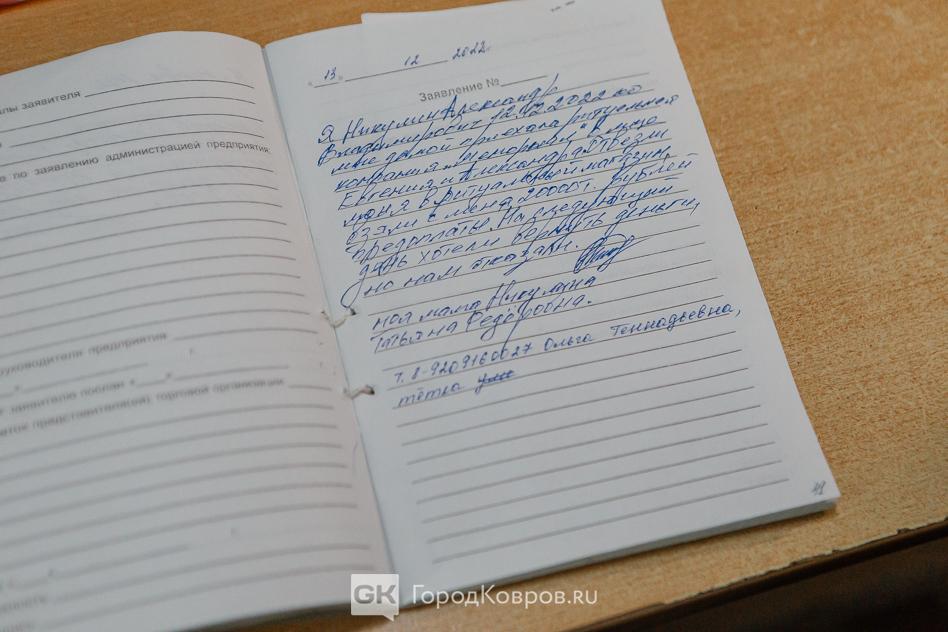 лы заявителя
е по заявлению администрации предприятия:
руководителя предприятия
т заявителю послан «
меток представителя(ей) торговой организации
« 13 » 12 2022г.
Заявление №
Я Никулин Александр
Владимирович 12.12.2022 ко
мне домой приехала ритуальная
компания "Мемориал" в лице
Евгения и Александра. Отвезли
меня в ритуальный магазин,
взяли с меня 20000т. рублей
предоплаты. На следующий
день хотели вернуть деньги,
но нам отказали.
моя мама Никулина
Татьяна Федоровна.
т. 8-9209160027 Ольга Геннадьевна,
тётка
41
GK ГородКовров.ru